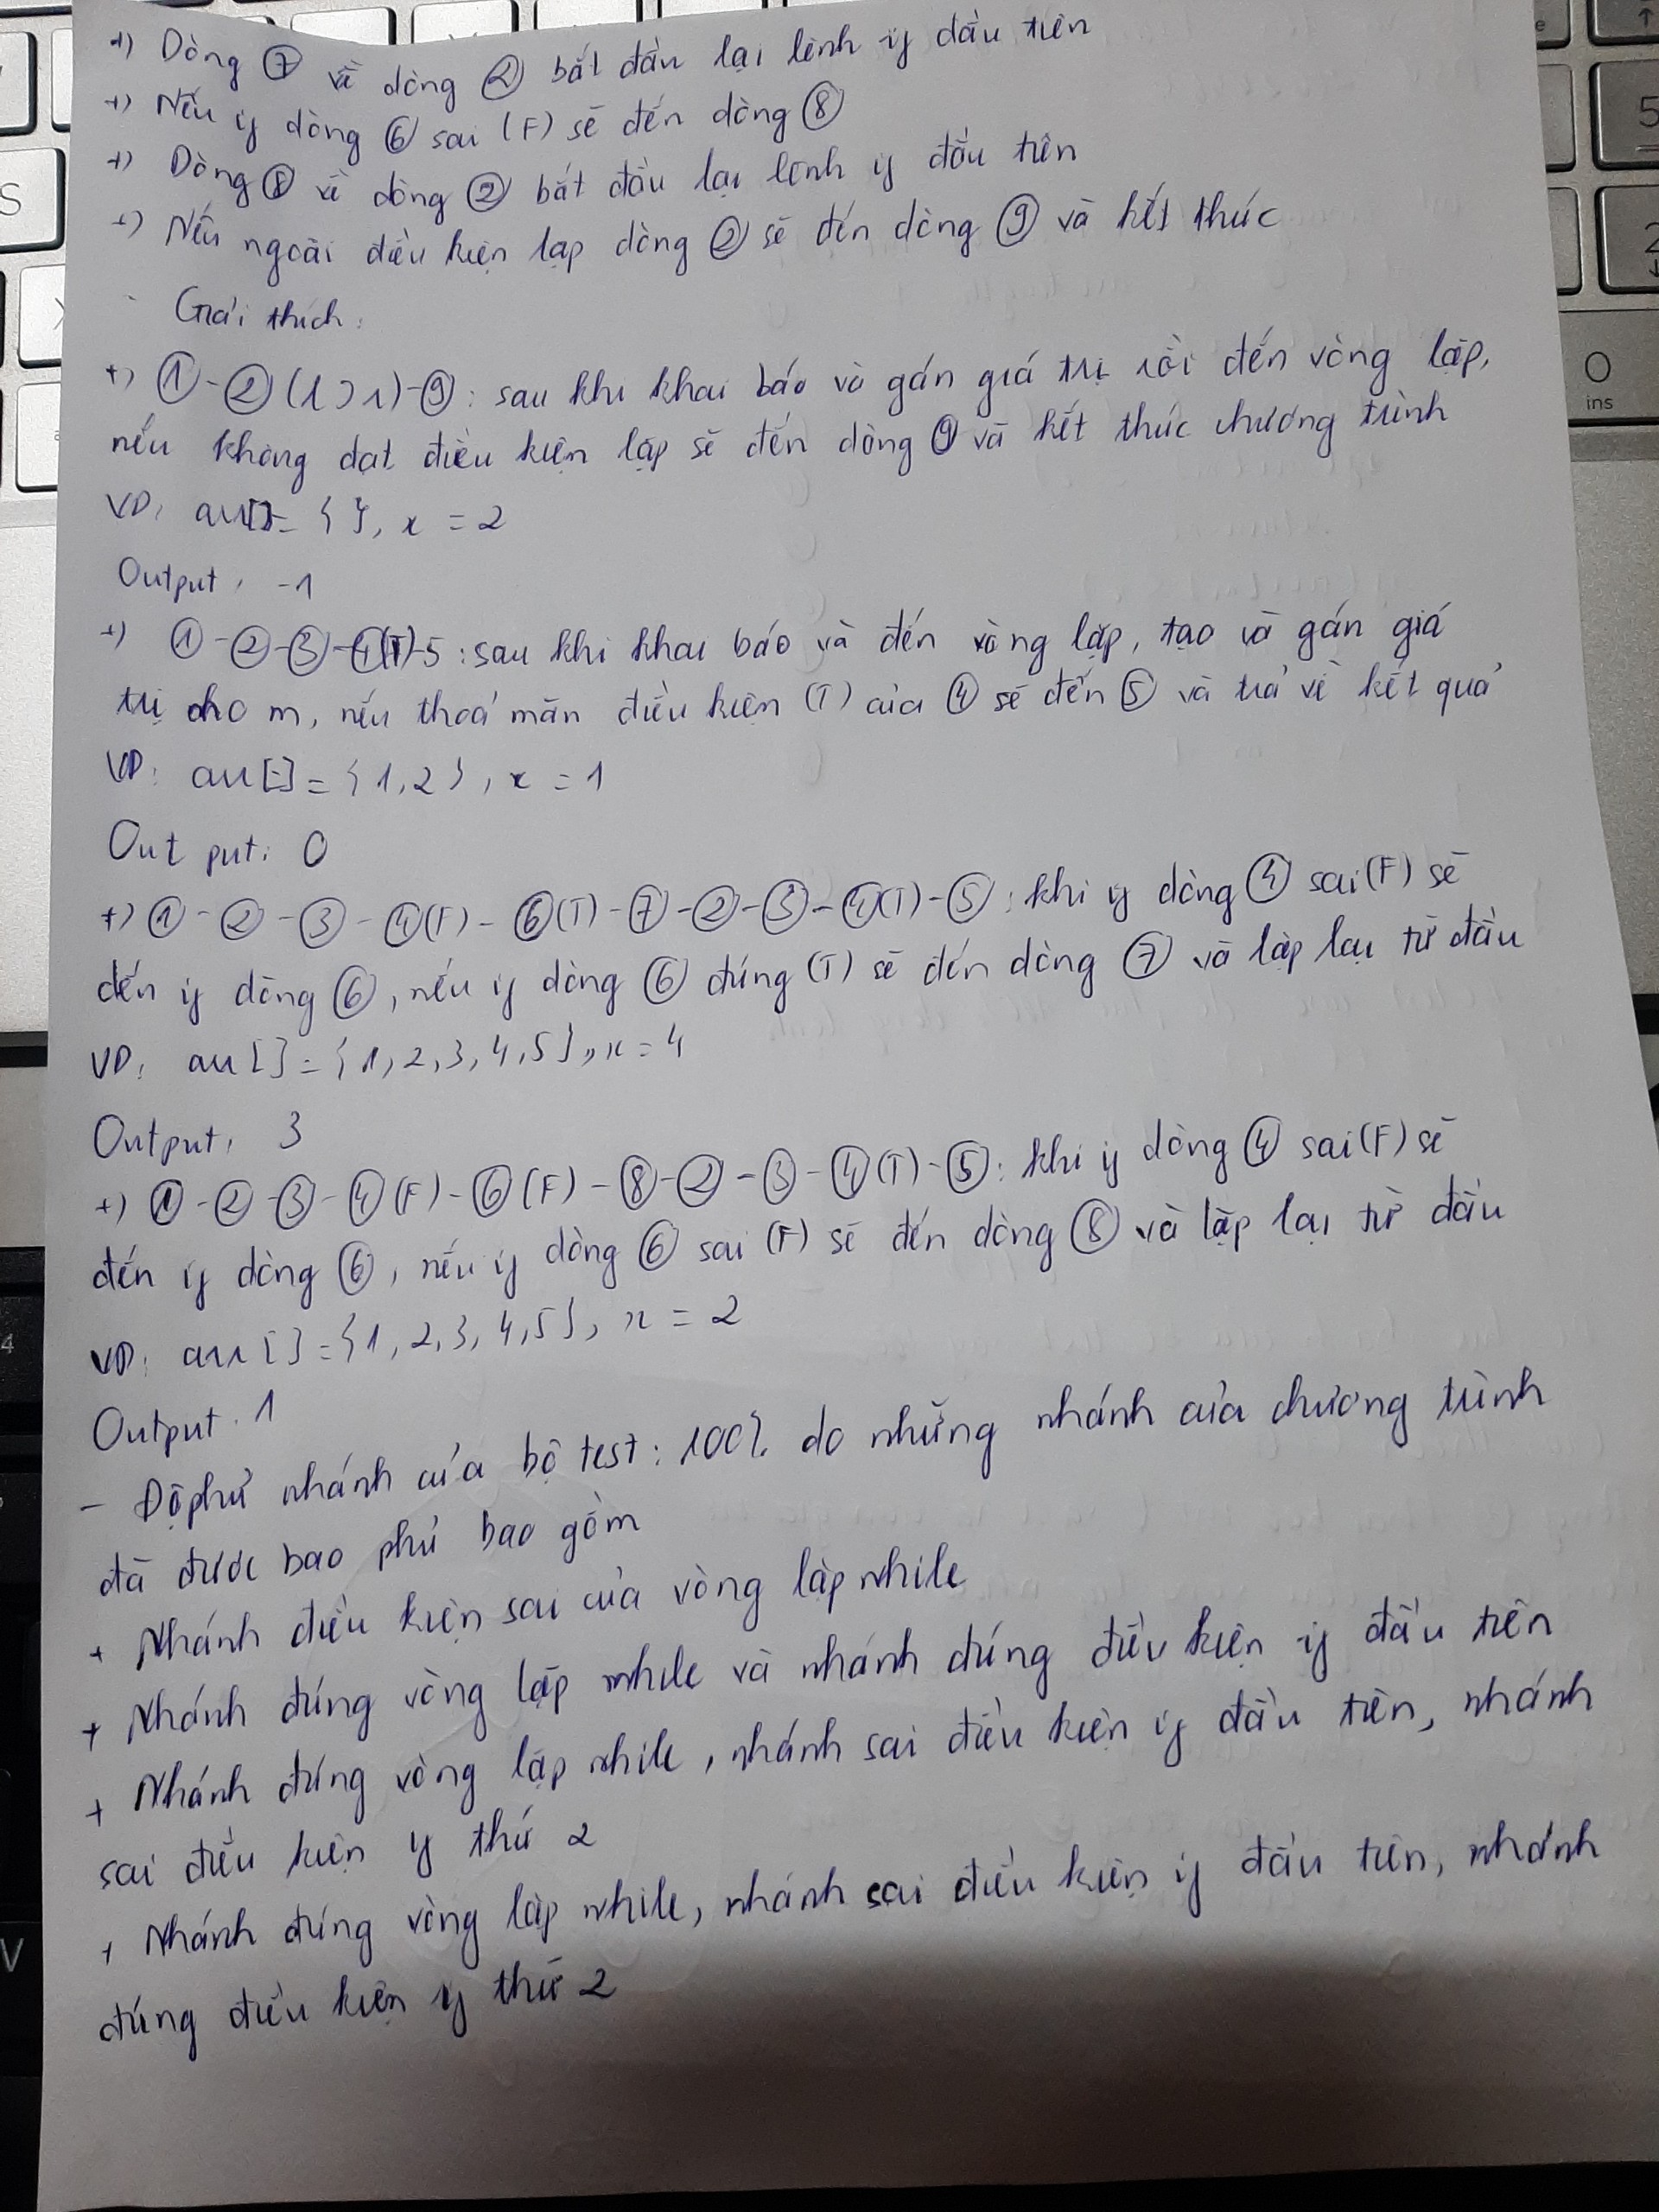 +) Dòng ⑦ về dòng ② bắt đầu lại lệnh if đầu tiên
+) Nếu if dòng ⑥ sai (F) sẽ đến dòng ⑧
+) Dòng ⑧ về dòng ② bắt đầu lại lệnh if đầu tiên
+) Nếu ngoài điều kiện lặp dòng ② sẽ đến dòng ⑨ và kết thúc
- Giải thích:
+) ①-②(l>r)-⑨: sau khi khai báo và gán giá trị rồi đến vòng lặp,
nếu không đạt điều kiện lặp sẽ đến dòng ⑨ và kết thúc chương trình
VD: arr[]= { }, x = 2
Output: -1
+) ①-②-③-④(T)-5: sau khi khai báo và đến vòng lặp, tạo và gán giá
trị cho m, nếu thoả mãn điều kiện (T) của ④ sẽ đến ⑤ và trả về kết quả
VD: arr[]= {1,2}, x = 1
Output: 0
+) ①-②-③-④(F)-⑥(T)-⑦-②-③-④(T)-⑤: khi if dòng ④ sai(F) sẽ
đến if dòng ⑥, nếu if dòng ⑥ đúng (T) sẽ đến dòng ⑦ và lặp lại từ đầu
VD: arr[]={1,2,3,4,5}, x=4
Output: 3
+) ①-②-③-④(F)-⑥(F)-⑧-②-③-④(T)-⑤: khi if dòng ④ sai(F) sẽ
đến if dòng ⑥, nếu if dòng ⑥ sai (F) sẽ đến dòng ⑧ và lặp lại từ đầu
VD: arr[]={1,2,3,4,5}, x = 2
Output: 1
- Độ phủ nhánh của bộ test: 100% do những nhánh của chương trình
đã được bao phủ bao gồm
+ Nhánh điều kiện sai của vòng lặp while
+ Nhánh đúng vòng lặp while và nhánh đúng điều kiện if đầu tiên
+ Nhánh đúng vòng lặp while, nhánh sai điều kiện if đầu tiên, nhánh
sai điều kiện if thứ 2
+ Nhánh đúng vòng lặp while, nhánh sai điều kiện if đầu tiên, nhánh
đúng điều kiện if thứ 2
S
4
V
5
2
0
ins